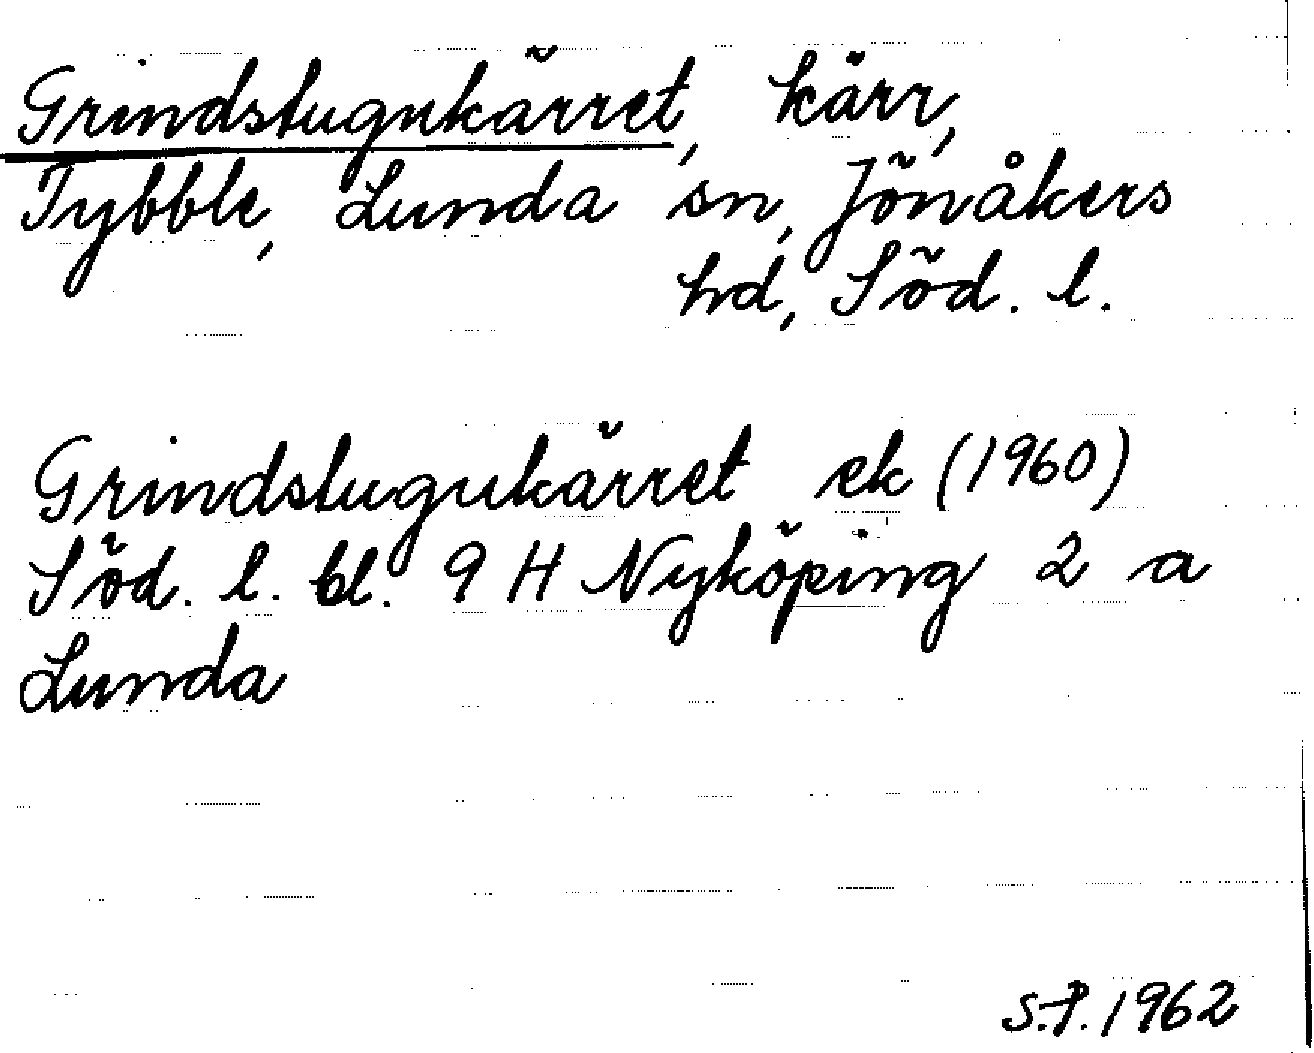 Grindstugukärret, kärr,
Tybble, Lunda sn, Jönåkers
hd, Söd. l.
Grindstugukärret ek (1960)
Söd. l. bl. 9 H Nyköping 2 a
Lunda
S.P. 1962